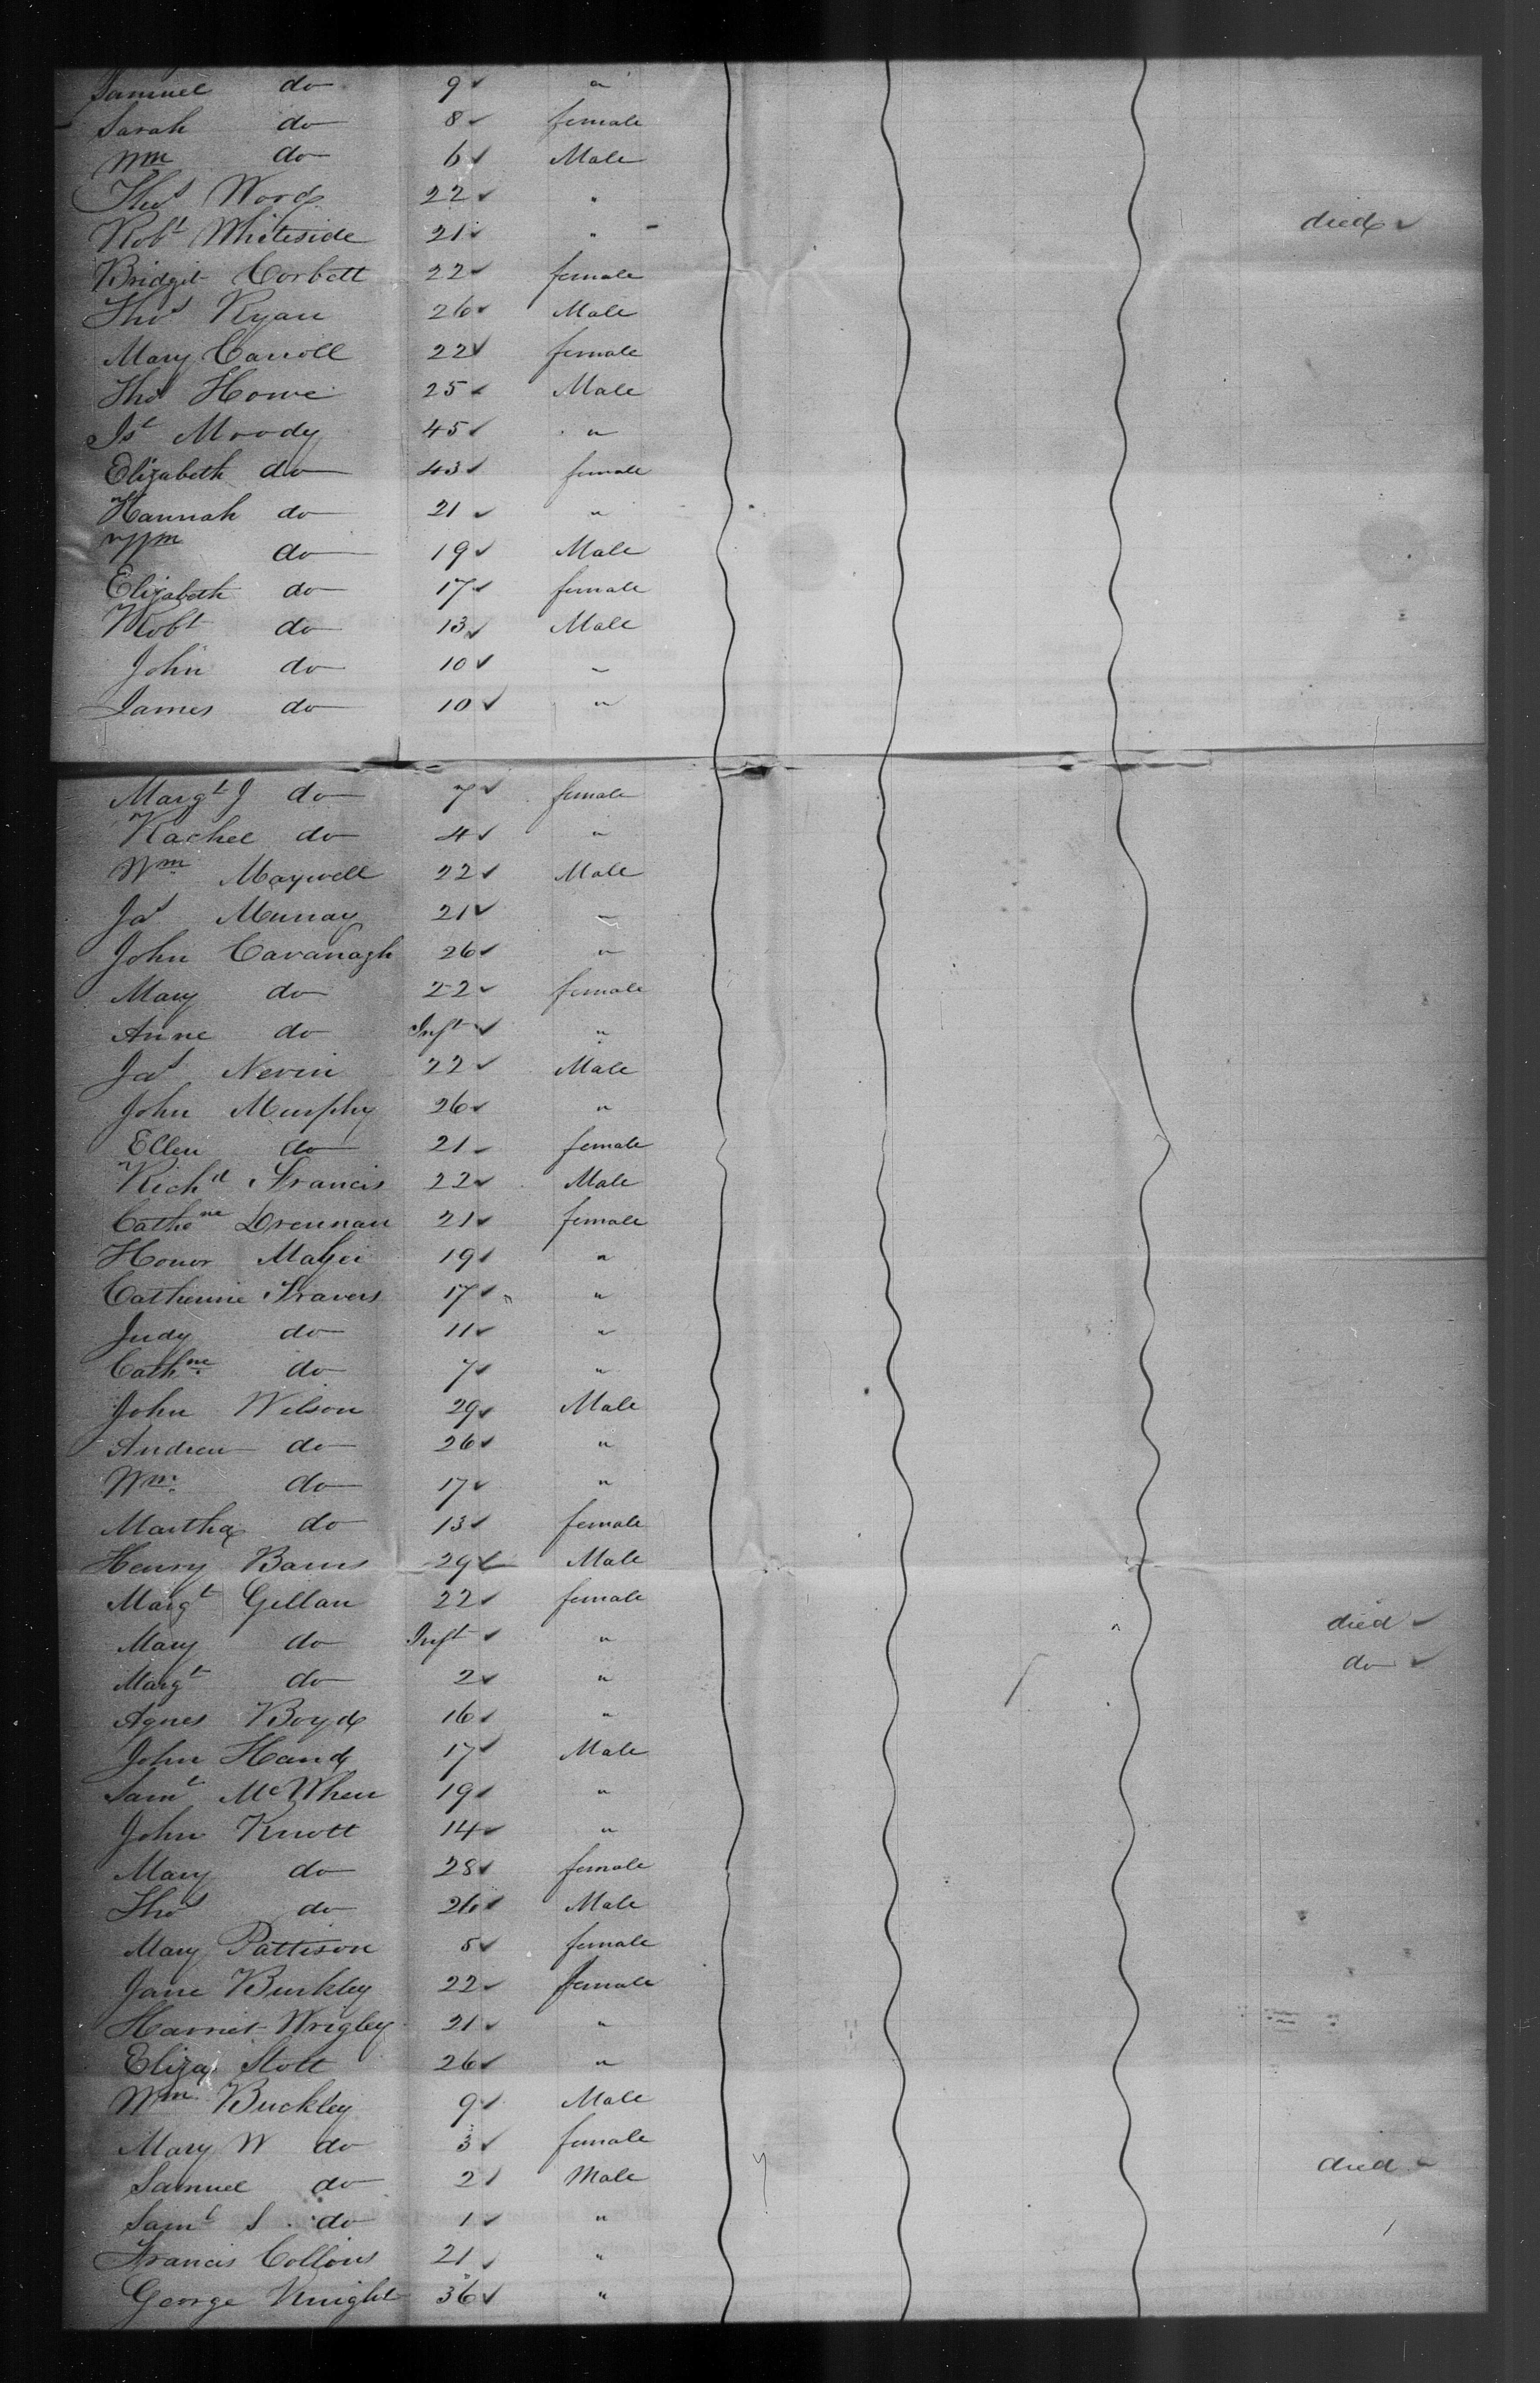 Samuel do 9 "
Sarah do 8 female
Wm do 6 Male
Thos Wood 22 "
Robt Whiteside 21 " died
Bridget Corbett 22 female
Thos Ryan 26 Male
Mary Carroll 22 female
Thos Howe 25 Male
Moody 45 "
Elizabeth do 43 female
Hannah do 21 "
Wm do 19 Male
Elizabeth do 17 female
Robt do 13 Male
John do 10 "
James do 10 "
Margt J do 7 female
Rachel do 4 "
Wm Maxwell 22 Male
Jas Murray 21 "
John Cavanagh 26 "
Mary do 22 female
Anne do Inft "
Jas Nevin 22 Male
John Murphy 26 "
Ellen do 21 female
Richd Francis 22 Male
Cathne Drennan 21 female
Honor 19 "
Catherine Travers 17 "
Judy do 11 "
Cathne do 7 "
John Wilson 29 Male
Andrew do 26 "
Wm do 17 "
Martha do 13 female
Henry Barns 29 Male
Margt Gillan 22 female
Mary do Inft " died
Margt do 2 " do
Agnes Boyd 16 "
John Hand 17 Male
Saml McWhen 19 "
John Knott 14 "
Mary do 28 female
Thos do 26 Male
Mary Pattison 5 female
Jane Burkley 22 female
Harriet Wrigley 21 "
Eliza Stott 26 "
Wm Buckley 9 Male
Mary W do 3 female
Samuel do 2 Male died
Saml S do 1 "
Francis Collons 21 "
George Knight 36 "